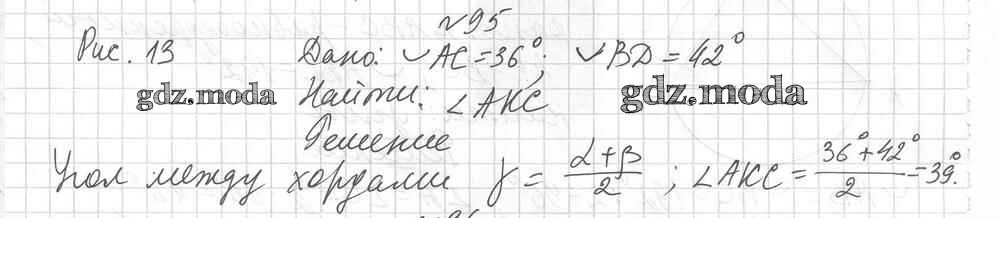 №95
Рис. 13 Дано: ◡AC = 36°; ◡BD = 42°
gdz.moda Найти: ∠AKC gdz.moda
Решение
Угол между хордами γ = (α+β)/2 ; ∠AKC = (36°+42°)/2 = 39°.